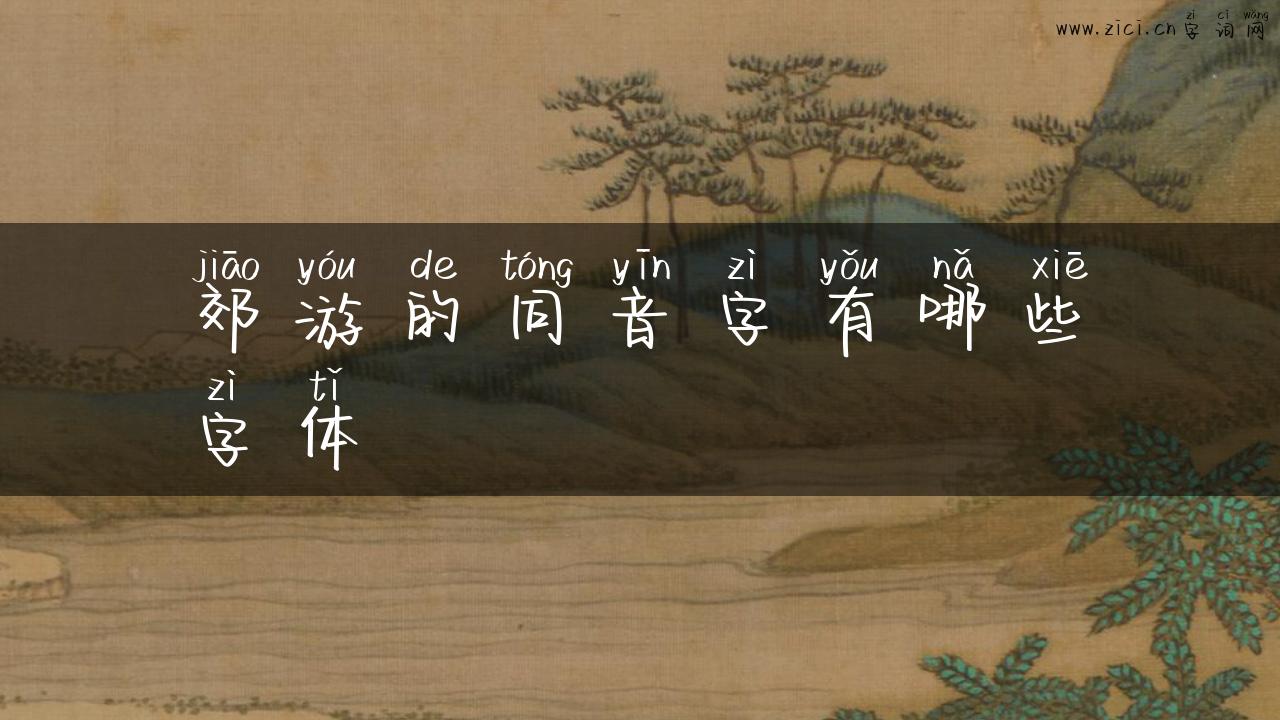 zì cí wǎng
www.zici.cn 字词网
jiāo yóu de tóng yīn zì yǒu nǎ xiē
郊游的同音字有哪些
zì tǐ
字体